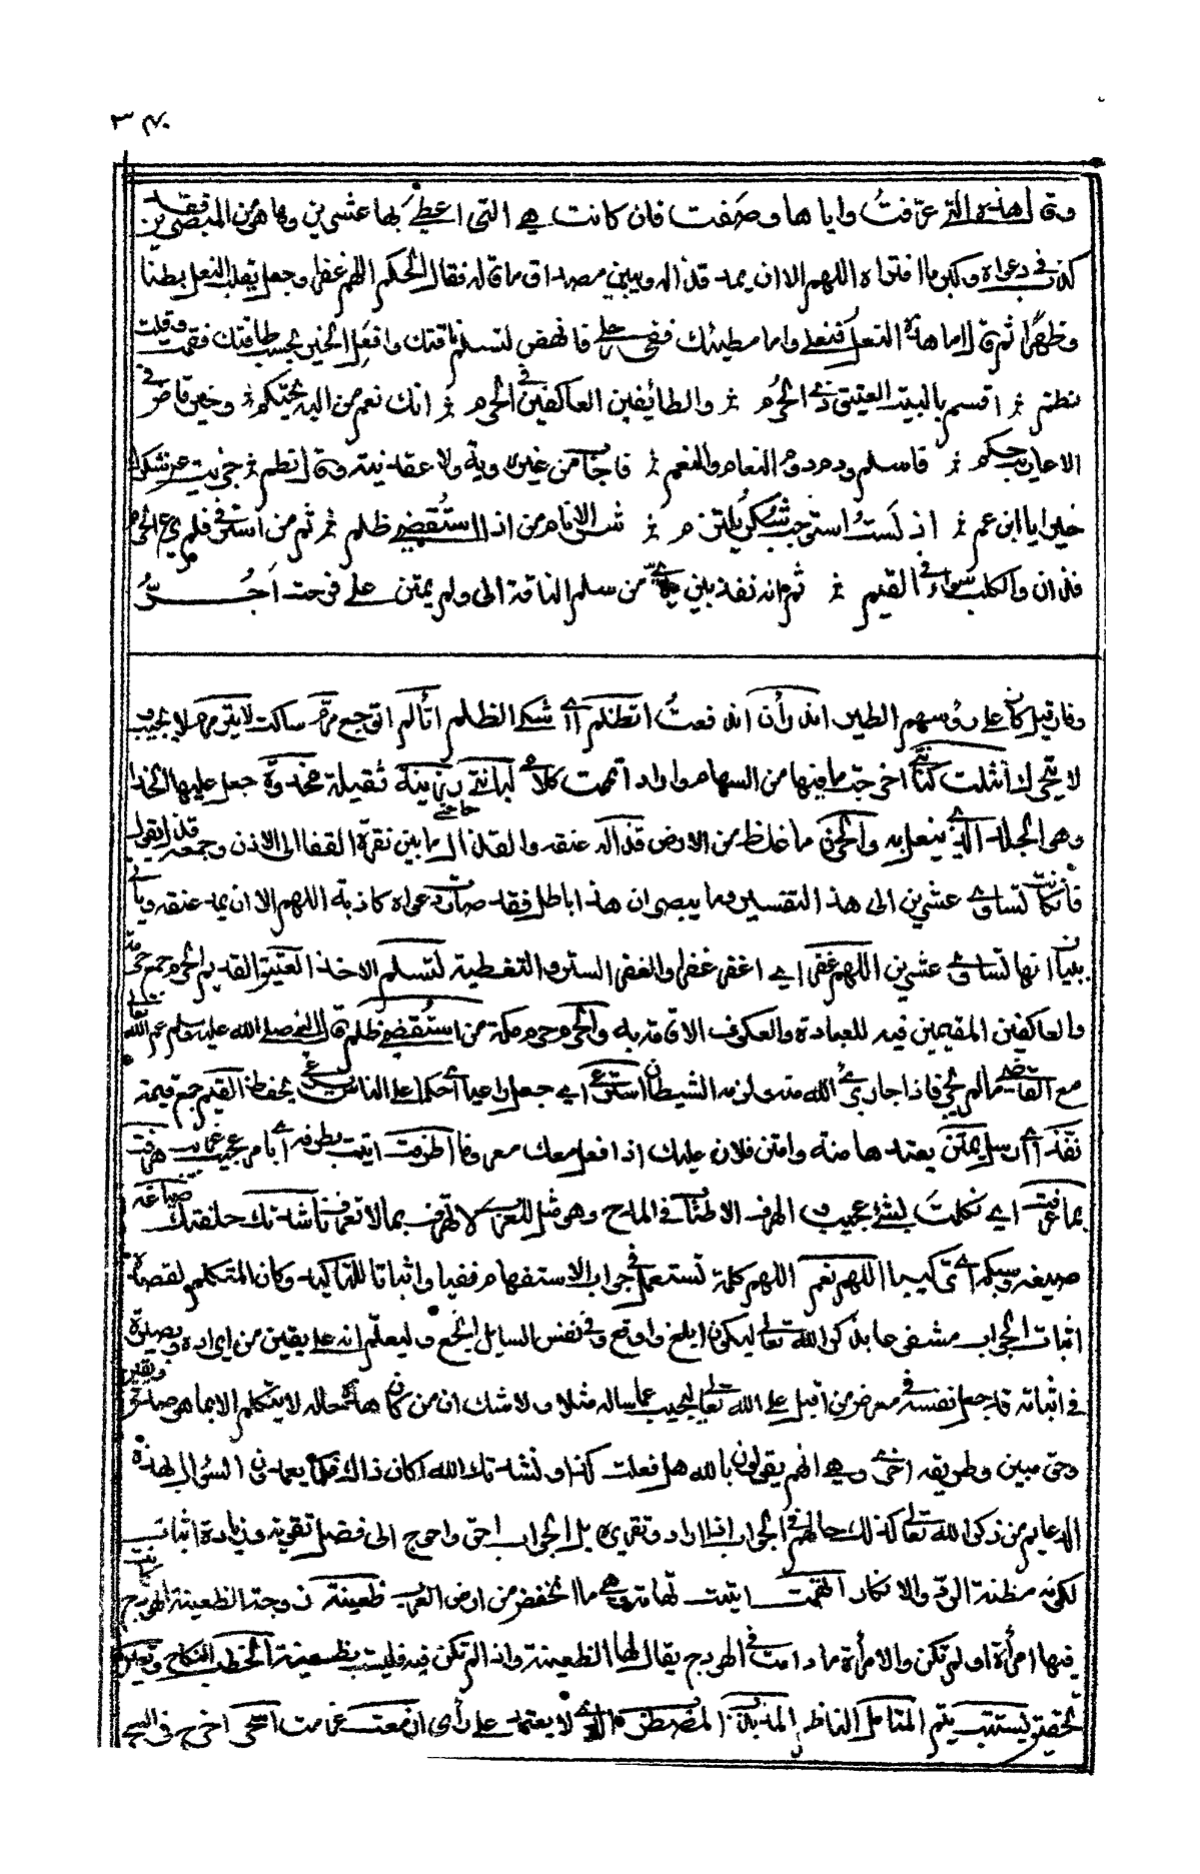 وقال هذه التى عرّفتُ واياها وصفت فان كانت هى التى اعطى بها عشرين وها هو من المبصرين فقد
كذب فى دعواه وكبر ما افتراه اللهم الا ان يمد قذاله ويبين مصداق ما قاله فقال الحكم اللهم غفرا وجعل يقلب النعل بطنًا
وظهرًا ثم قال اما هذه النعل فنعلى واما مطيتك ففى رحلى فانهض لتسلم ناقتك وافعل الخير بحسب طاقتك فقمت وقلت
نظم اقسم بالبيت العتيق ذى الحرم والطائفين العاكفين فى الحرم انك نعم من اليه يحتكم وخير قاض فى
الاعاريب حكم فاسلم ودم دوم النعام والنعم فاجاب من غير روية ولا عقد نية وقال نظم جزيت عن شكرك
خيرا يا ابن عم اذ لستُ استوجب شكرا يلتزم شر الانام من اذا استُقضى ظلم ثم من استرعى فلم يرع الحرم
فذان والكلب سواء فى القيم ثم انه نفذ بين يدى من سلم الناقة الى ولم يمتن على فرحت اجرّ
وقار قيل كان على رؤسهم الطير اندرأن اندفعتُ اتظلم اى اشكو الظلم اتألم اتوجع مرم ساكت لا يترمرم لا يجيب و
لا يتحرك انثلت كنانتى اخرجت ما فيها من السهام واراد اتممت كلامى لبانتى حاجتى رزينة ثقيلة محذوة جعل عليها الحذا
وهى الجلد الذى ينعل به والحزن ما غلظ من الارض قذاله عنقه والقذال ما بين نقرة القفا الى الاذن وجمعه قذل يقول
فأن كانت تساوى عشرين الى هذا التفسير وما يبصر ان هذا باطل فقد صارت دعواه كاذبة اللهم الا ان يمد عنقه ويأتى
بينان انها تساوى عشرين اللهم غفرا اى اغفر غفرا والغفر الستر والتغطية لتسلم الاخذ العتيق القديم الحرم جمع حرمة
والعاكفين المقيمين فيه للعبادة والعكوف الاقامة به والحرم حرم مكة من استُقضى ظلم قال النبى صلى الله عليه وسلم ان الله تعالى
مع القاضى مالم يجر فاذا جار برئ الله منه ولزمه الشيطان استرعى اى جعل راعيا اى حاكما على الناس يرعى يحفظ القيم جمع قيمة
نفّذ اى ارسل يمتن يعتدها منة وامتن فلان عليك اذا فعل معك معروفا اطرفت اتيت بطرفة اى بامر عجيب هرفت
بما عرفت اى تكلمت بشئ عجيب و الهرف الاطناب فى المدح وهو مثل للعرب لا تهرف بما لا تعرف ناشدتك حلفتك صياغة
صيغه وسبكه اى تركيبا اللهم نعم اللهم كلمة تستعمل فى جواب الاستفهام نفيا واثباتا للتاكيد وكان المتكلم لقصد
اثبات الجواب مشفوعا بذكر الله تعالى ليكون ابلغ واوقع وفى نفس السايل انجع وليعلم انه على يقين من ايراده وبصيرة
فى اثباته قد جعل نفسه فى معرض من اقبل على الله تعالى ليجيب عما ساله مثلا ولا شك ان من كان هذا حاله لا يتكلم الا بما هو صدق ويقين
وحق مبين وطريقه اخرى وهى انهم يقولون بالله هل فعلت كذا ونشدتك الله اكان ذاك فكما يعمدون السؤال بهذه
الدعايم من ذكر الله تعالى كذلك حالهم فى الجواب ايرادا وتقريرا بل الجواب احق واحوج الى فضل تقوية وزيادة اثبات
لكونه مظنة الرد والانكار اتهمت اتيت تهامة وهى ما انخفض من ارض العرب ظعينة زوجة الظعينة الهودج كانت
فيها امرأة او لم تكن والامرأة ما دامت فى الهودج يقال لها الظعينة واذا لم تكن فيه فليست بظعينة الخطب النكاح
تحقيق يستتب يتم المتامل الناظر المذبذب المضطرب الذى لا يعتمد على رأى ازمعت عزمت اسحر اخرج فى السحر